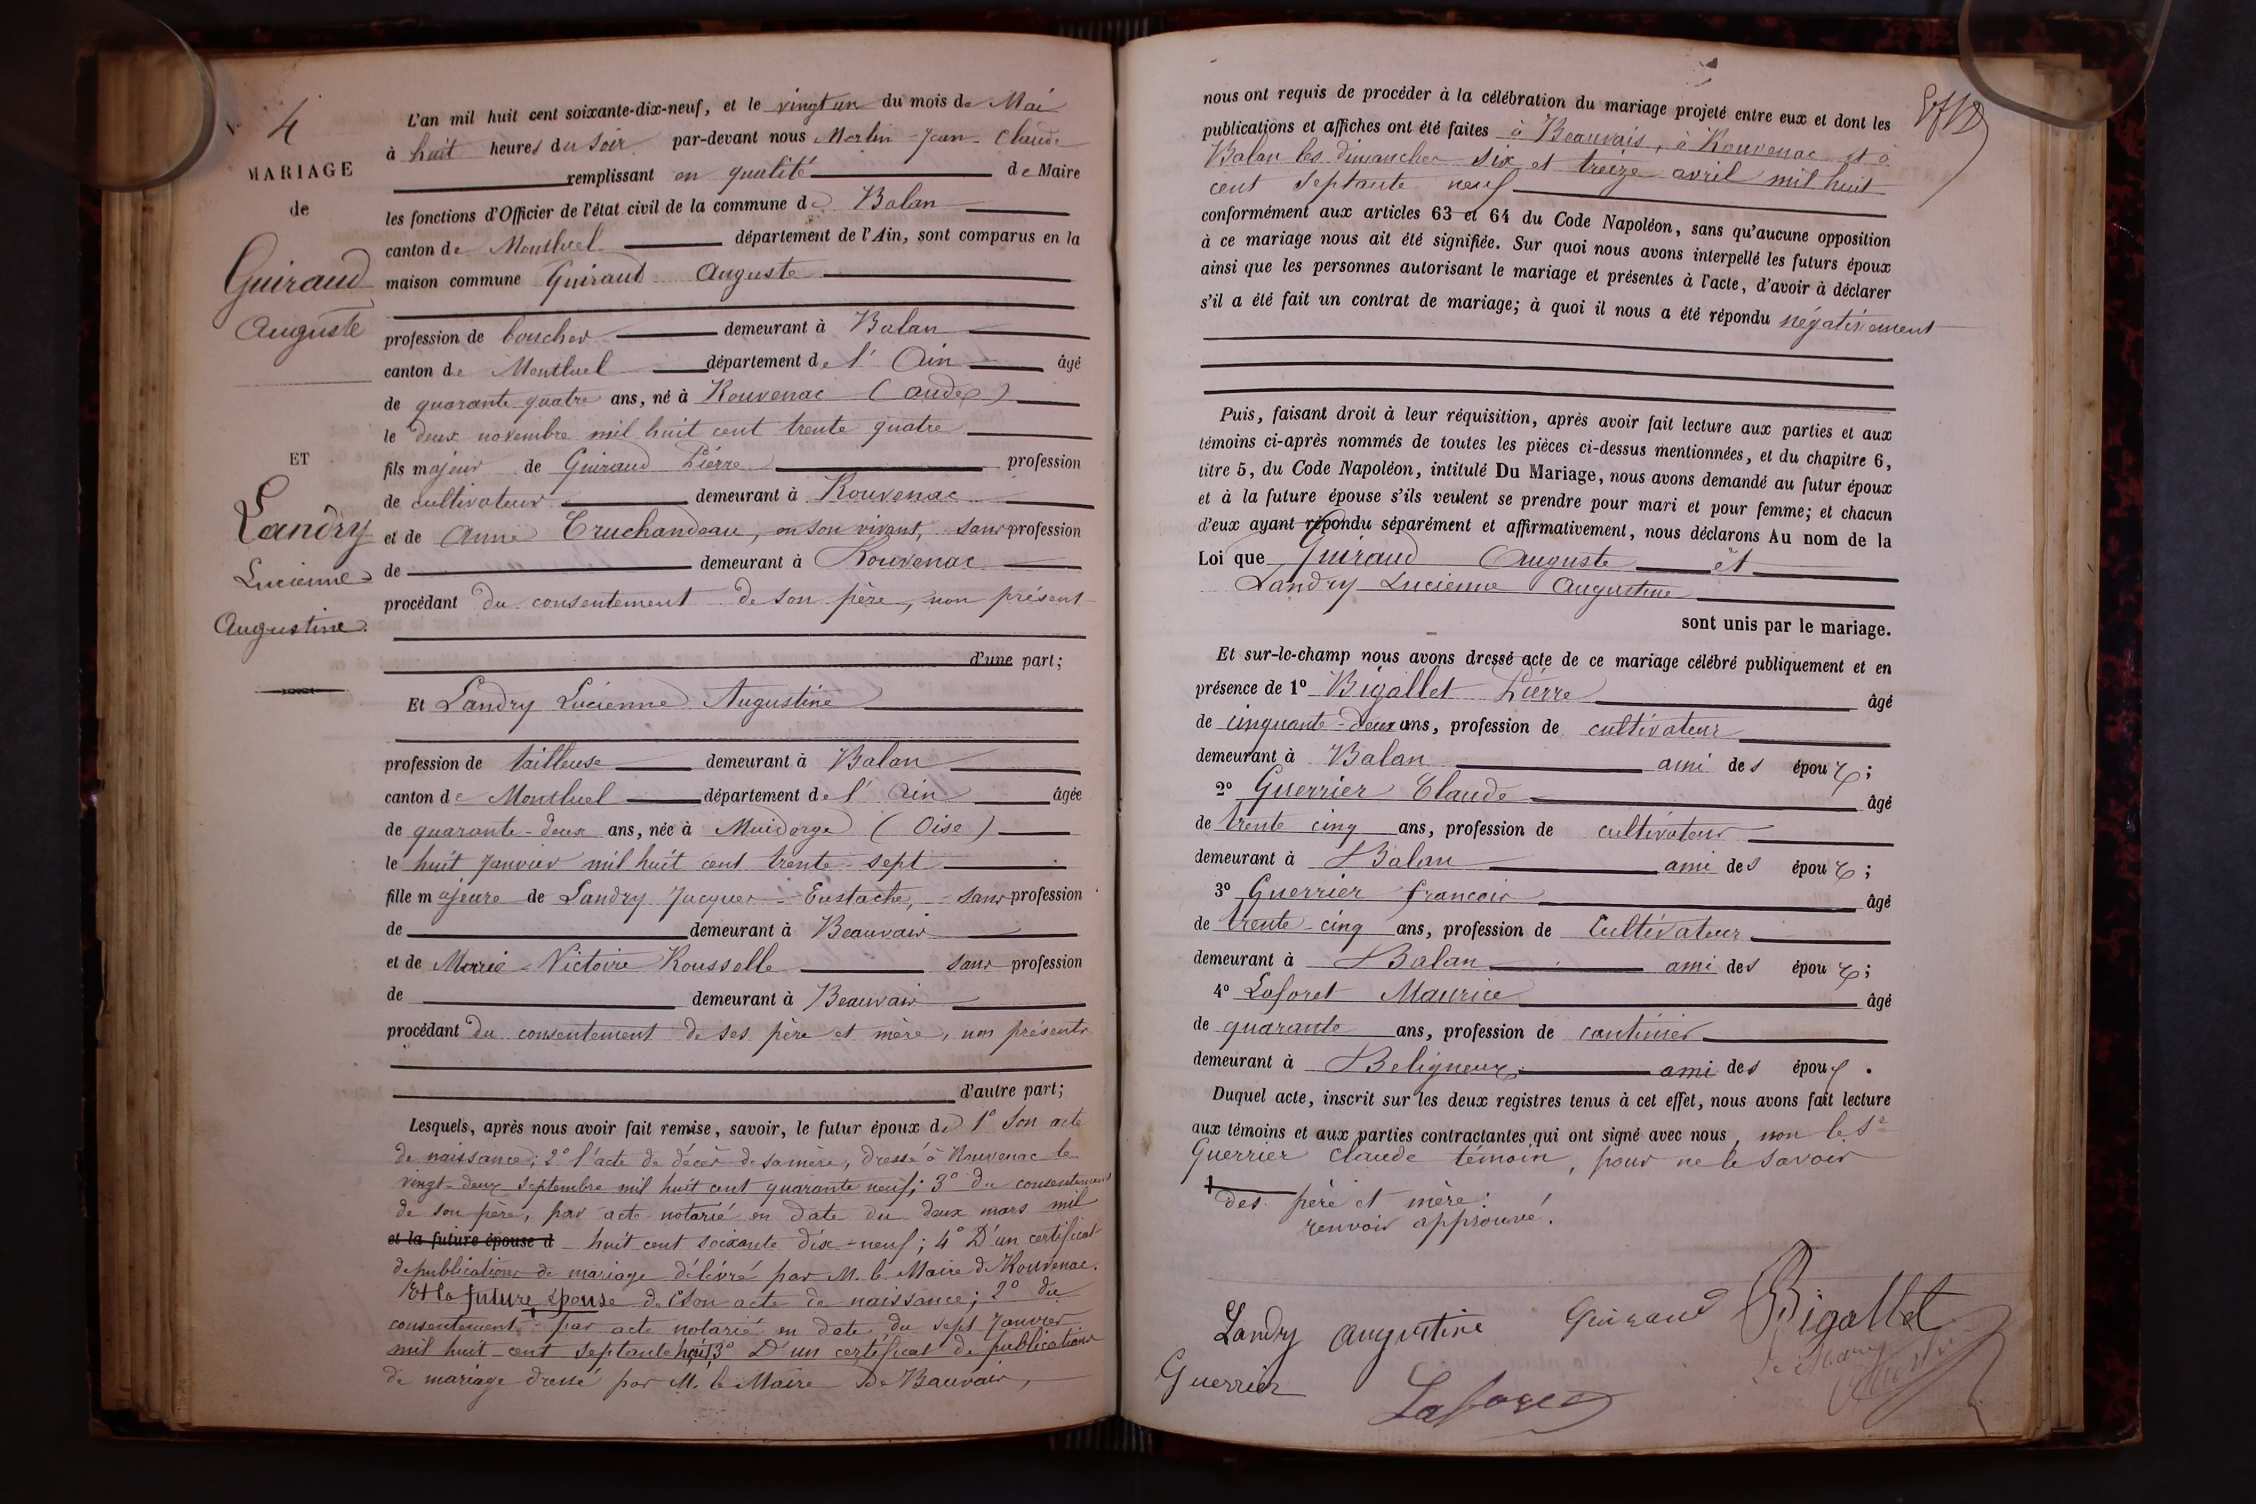 4
MARIAGE
de
Guiraud
Auguste
ET
Landry
Lucienne
Augustine.
L'an mil huit cent soixante-dix-neuf, et le vingt un du mois de Mai
à huit heures du soir par-devant nous Merlin Jean-Claude
remplissant en qualité de Maire
les fonctions d'Officier de l'état civil de la commune de Balan
canton de Montluel département de l'Ain, sont comparus en la
maison commune Guiraud Auguste
profession de boucher demeurant à Balan
canton de Montluel département de l'Ain âgé
de quarante quatre ans, né à Rouvenac (Aude)
le deux novembre mil huit cent trente quatre
fils majeur de Guiraud Pierre profession
de cultivateur demeurant à Rouvenac
et de Anne Truchandeau, en son vivant, sans profession
de demeurant à Rouvenac
procédant du consentement de son père, non présent
d'une part;
Et Landry Lucienne Augustine
profession de tailleuse demeurant à Balan
canton de Montluel département de l'Ain âgée
de quarante-deux ans, née à Muidorge (Oise)
le huit Janvier mil huit cent trente-sept
fille majeure de Landry Jacques-Eustache, sans profession
de demeurant à Beauvais
et de Marie Victoire Rousselle sans profession
de demeurant à Beauvais
procédant du consentement de ses père et mère, non présents
d'autre part;
Lesquels, après nous avoir fait remise, savoir, le futur époux de 1° Son acte
de naissance; 2° l'acte de décès de sa mère, dressé à Rouvenac le
vingt-deux septembre mil huit cent quarante neuf; 3° du consentement
de son père, par acte notarié en date du deux mars mil
et la future épouse d huit cent soixante dix-neuf; 4° D'un certificat
de publications de mariage délivré par M. le Maire de Rouvenac.
Et la future épouse de 1° Son acte de naissance; 2° du
consentement par acte notarié en date du sept Janvier
mil huit-cent septante huit; 3° D'un certificat de publications
de mariage dressé par M. le Maire de Bauvais,
nous ont requis de procéder à la célébration du mariage projeté entre eux et dont les
publications et affiches ont été faites à Beauvais, à Rouvenac et à
Balan les dimanches six et treize avril mil huit
cent septante neuf
conformément aux articles 63 et 64 du Code Napoléon, sans qu'aucune opposition
à ce mariage nous ait été signifiée. Sur quoi nous avons interpellé les futurs époux
ainsi que les personnes autorisant le mariage et présentes à l'acte, d'avoir à déclarer
s'il a été fait un contrat de mariage; à quoi il nous a été répondu négativement
Puis, faisant droit à leur réquisition, après avoir fait lecture aux parties et aux
témoins ci-après nommés de toutes les pièces ci-dessus mentionnées, et du chapitre 6,
titre 5, du Code Napoléon, intitulé Du Mariage, nous avons demandé au futur époux
et à la future épouse s'ils veulent se prendre pour mari et pour femme; et chacun
d'eux ayant répondu séparément et affirmativement, nous déclarons Au nom de la
Loi que Guiraud Auguste et
Landry Lucienne Augustine
sont unis par le mariage.
Et sur-le-champ nous avons dressé acte de ce mariage célébré publiquement et en
présence de 1° Bigallet Pierre âgé
de cinquante-deux ans, profession de cultivateur
demeurant à Balan ami des époux;
2° Guerrier Claude âgé
de trente cinq ans, profession de cultivateur
demeurant à Balan ami des époux;
3° Guerrier françois âgé
de trente-cinq ans, profession de Cultivateur
demeurant à Balan ami des époux;
4° Laforet Maurice âgé
de quarante ans, profession de cantinier
demeurant à Beligneux ami des époux.
Duquel acte, inscrit sur les deux registres tenus à cet effet, nous avons fait lecture
aux témoins et aux parties contractantes qui ont signé avec nous, non le Sr
Guerrier Claude témoin, pour ne le savoir
des père et mère:
renvoi approuvé.
Landry Augustine Guiraud Bigallet
Guerrier Laforet
Le Maire